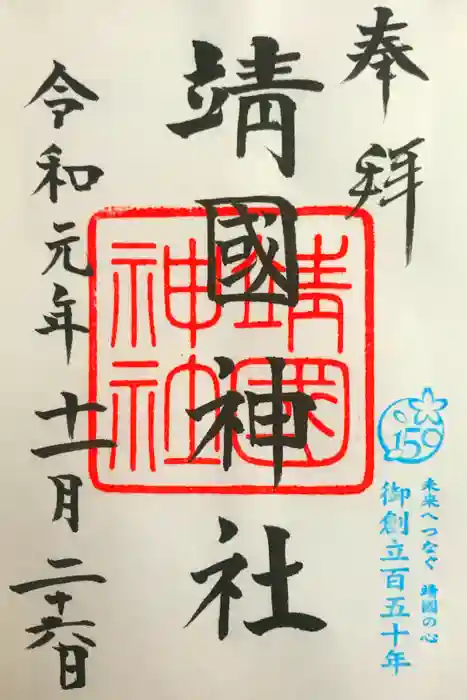 奉拝
靖國神社
靖國
神社
令和元年十一月二十六日
150
未来へつなぐ 靖國の心
御創立百五十年